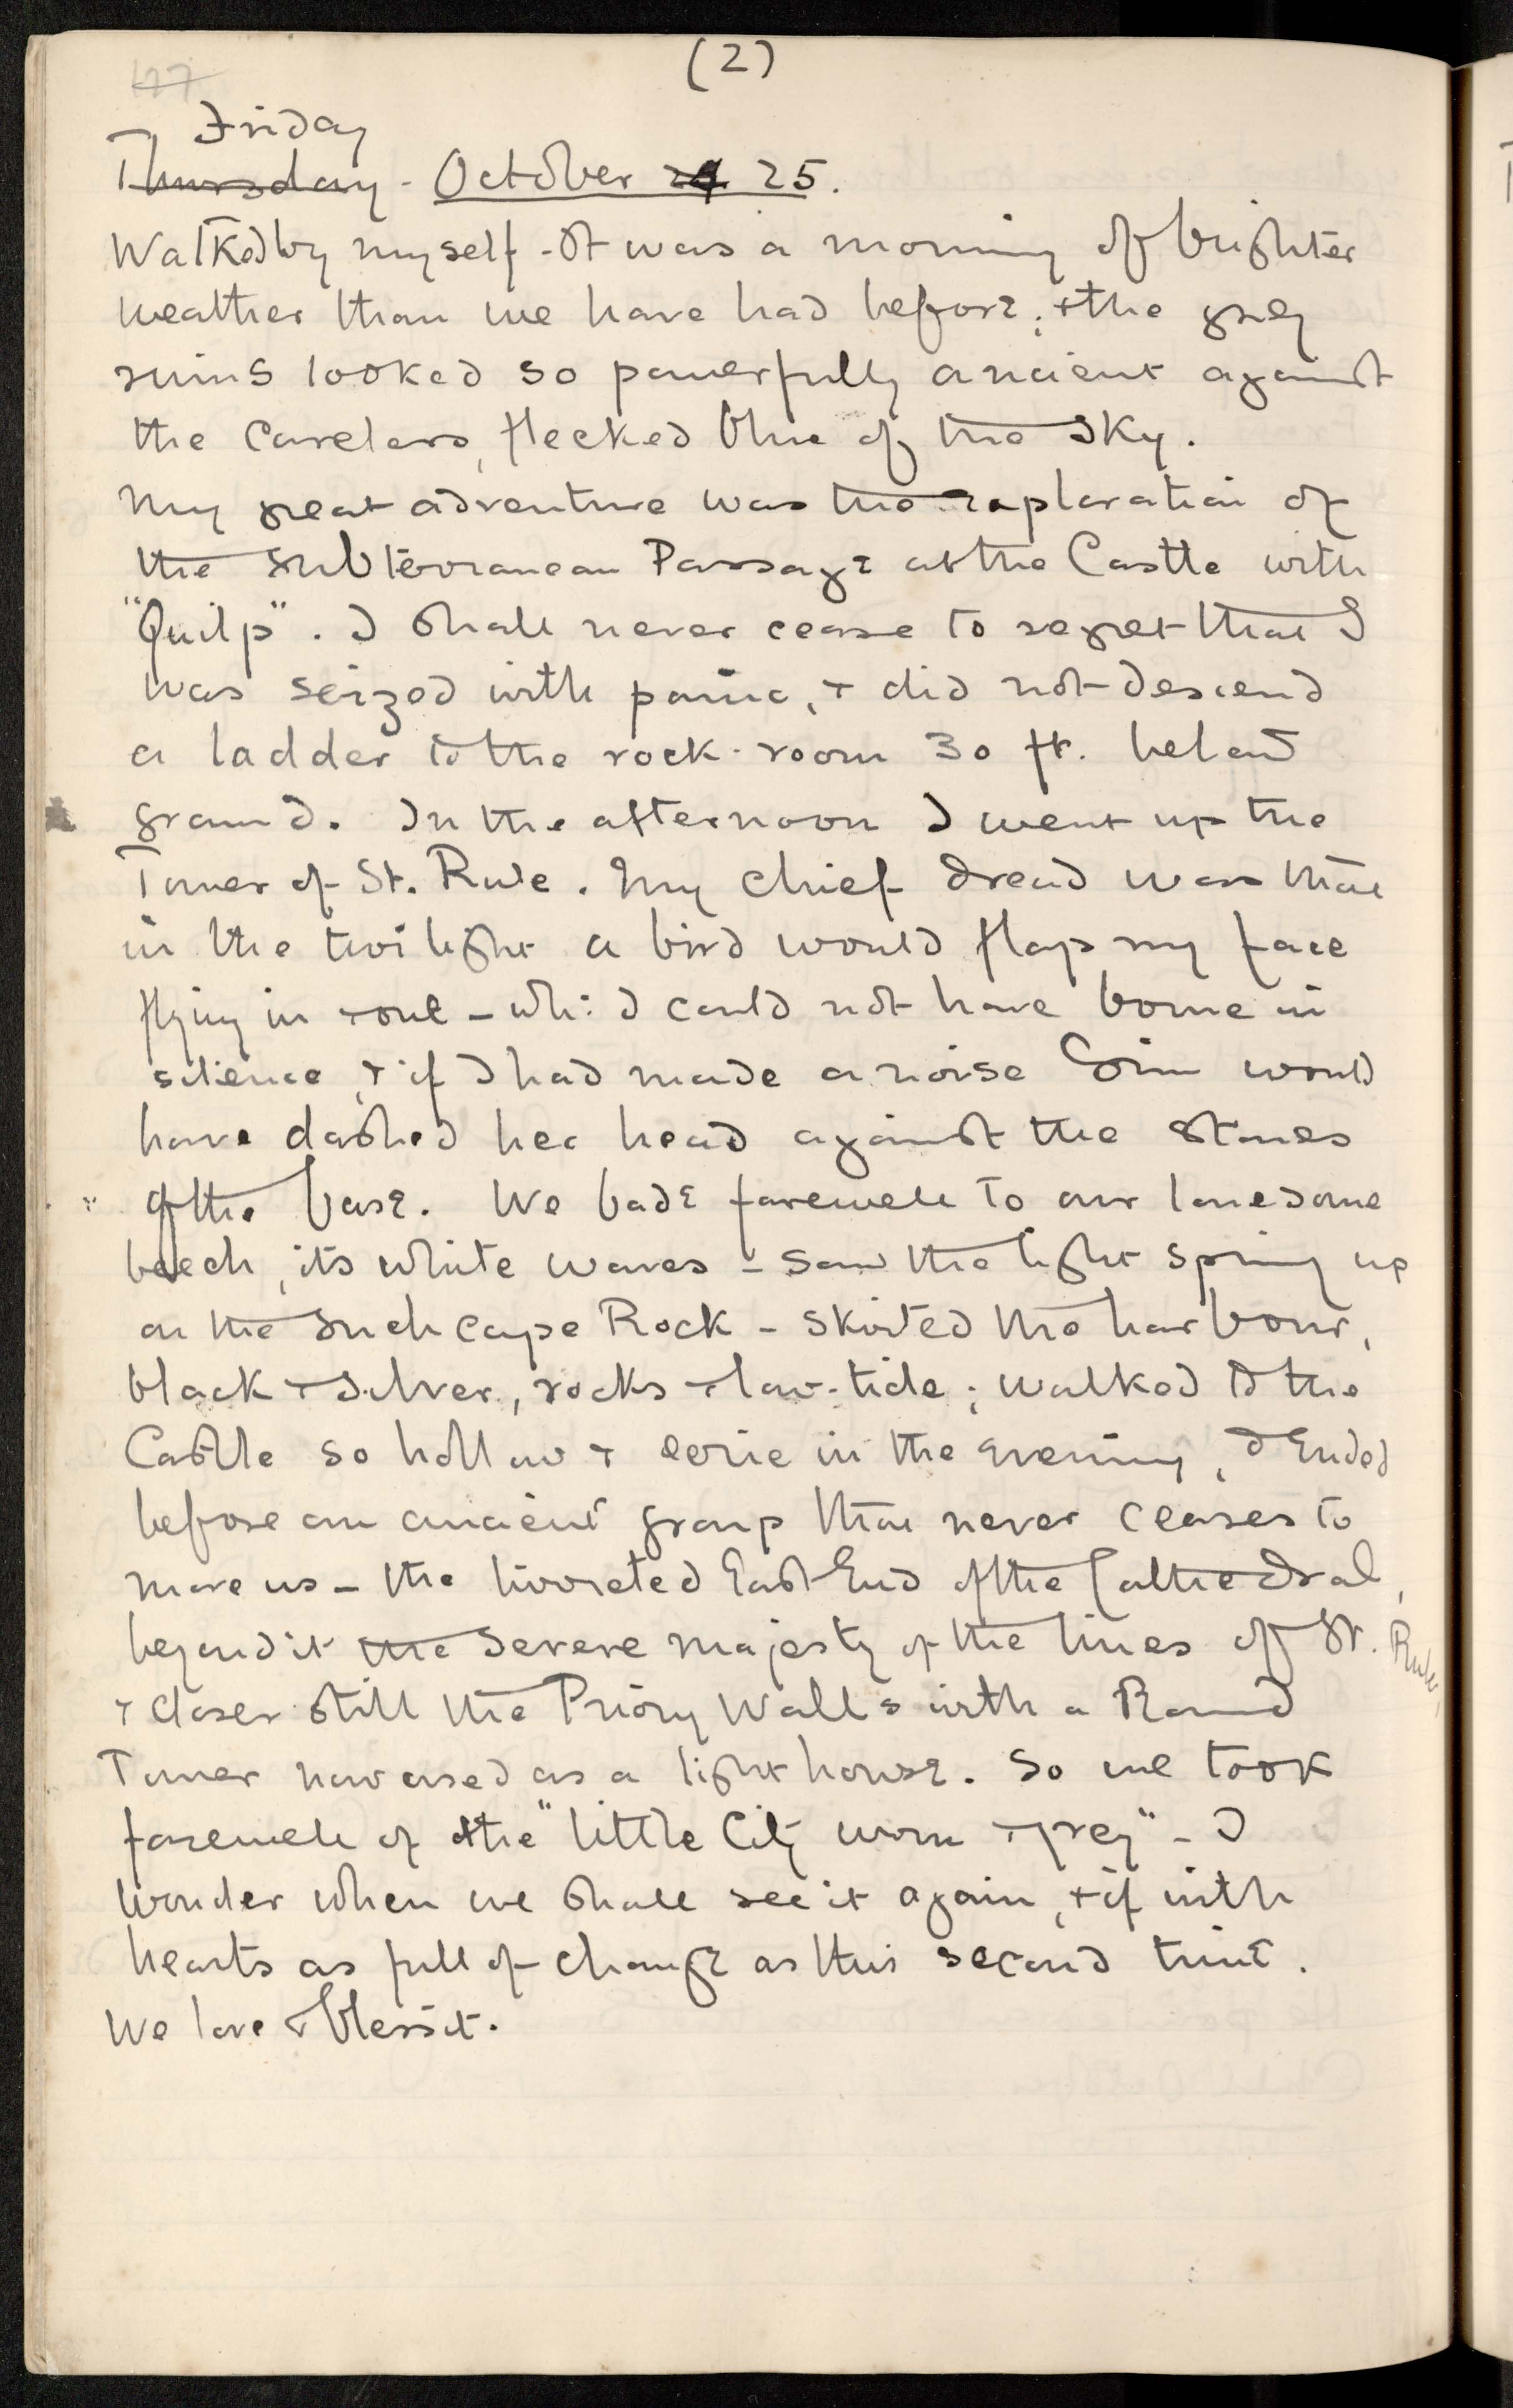 (2)
47
Friday
Thursday - October 24 25.
Walked by myself - It was a morning of brighter
weather than we have had before, + the grey
ruins looked so powerfully ancient against
the careless, flecked blue of the sky.
My great adventure was the exploration of
the Subterranean Passage at the Castle with
"Quilp". I shall never cease to regret that I
was seized with panic, + did not descend
a ladder to the rock-room 30 ft. below
ground. In the afternoon I went up the
Tower of St. Rule. My chief dread was that
in the twilight a bird would flap my face
flying in + out - whi: I could not have borne in
silence, + if I had made a noise Sim would
have dashed her head against the stones
of the base. We bade farewell to our lonesome
beech, its white waves - saw the light spring up
on the Inchcape Rock - skirted the harbour,
black + silver, rocks + low-tide; walked to the
Castle so hollow + eerie in the evening, + Ended
before an ancient group that never ceases to
move us - the turreted East End of the Cathedral,
beyond it the severe majesty of the lines of St. Rule,
+ closer still the Priory Walls with a Round
Tower now used as a light house. So we took
farewell of the "little City worn + grey" - I
wonder when we shall see it again, + if with
hearts as full of change as this second time.
We love + bless it.